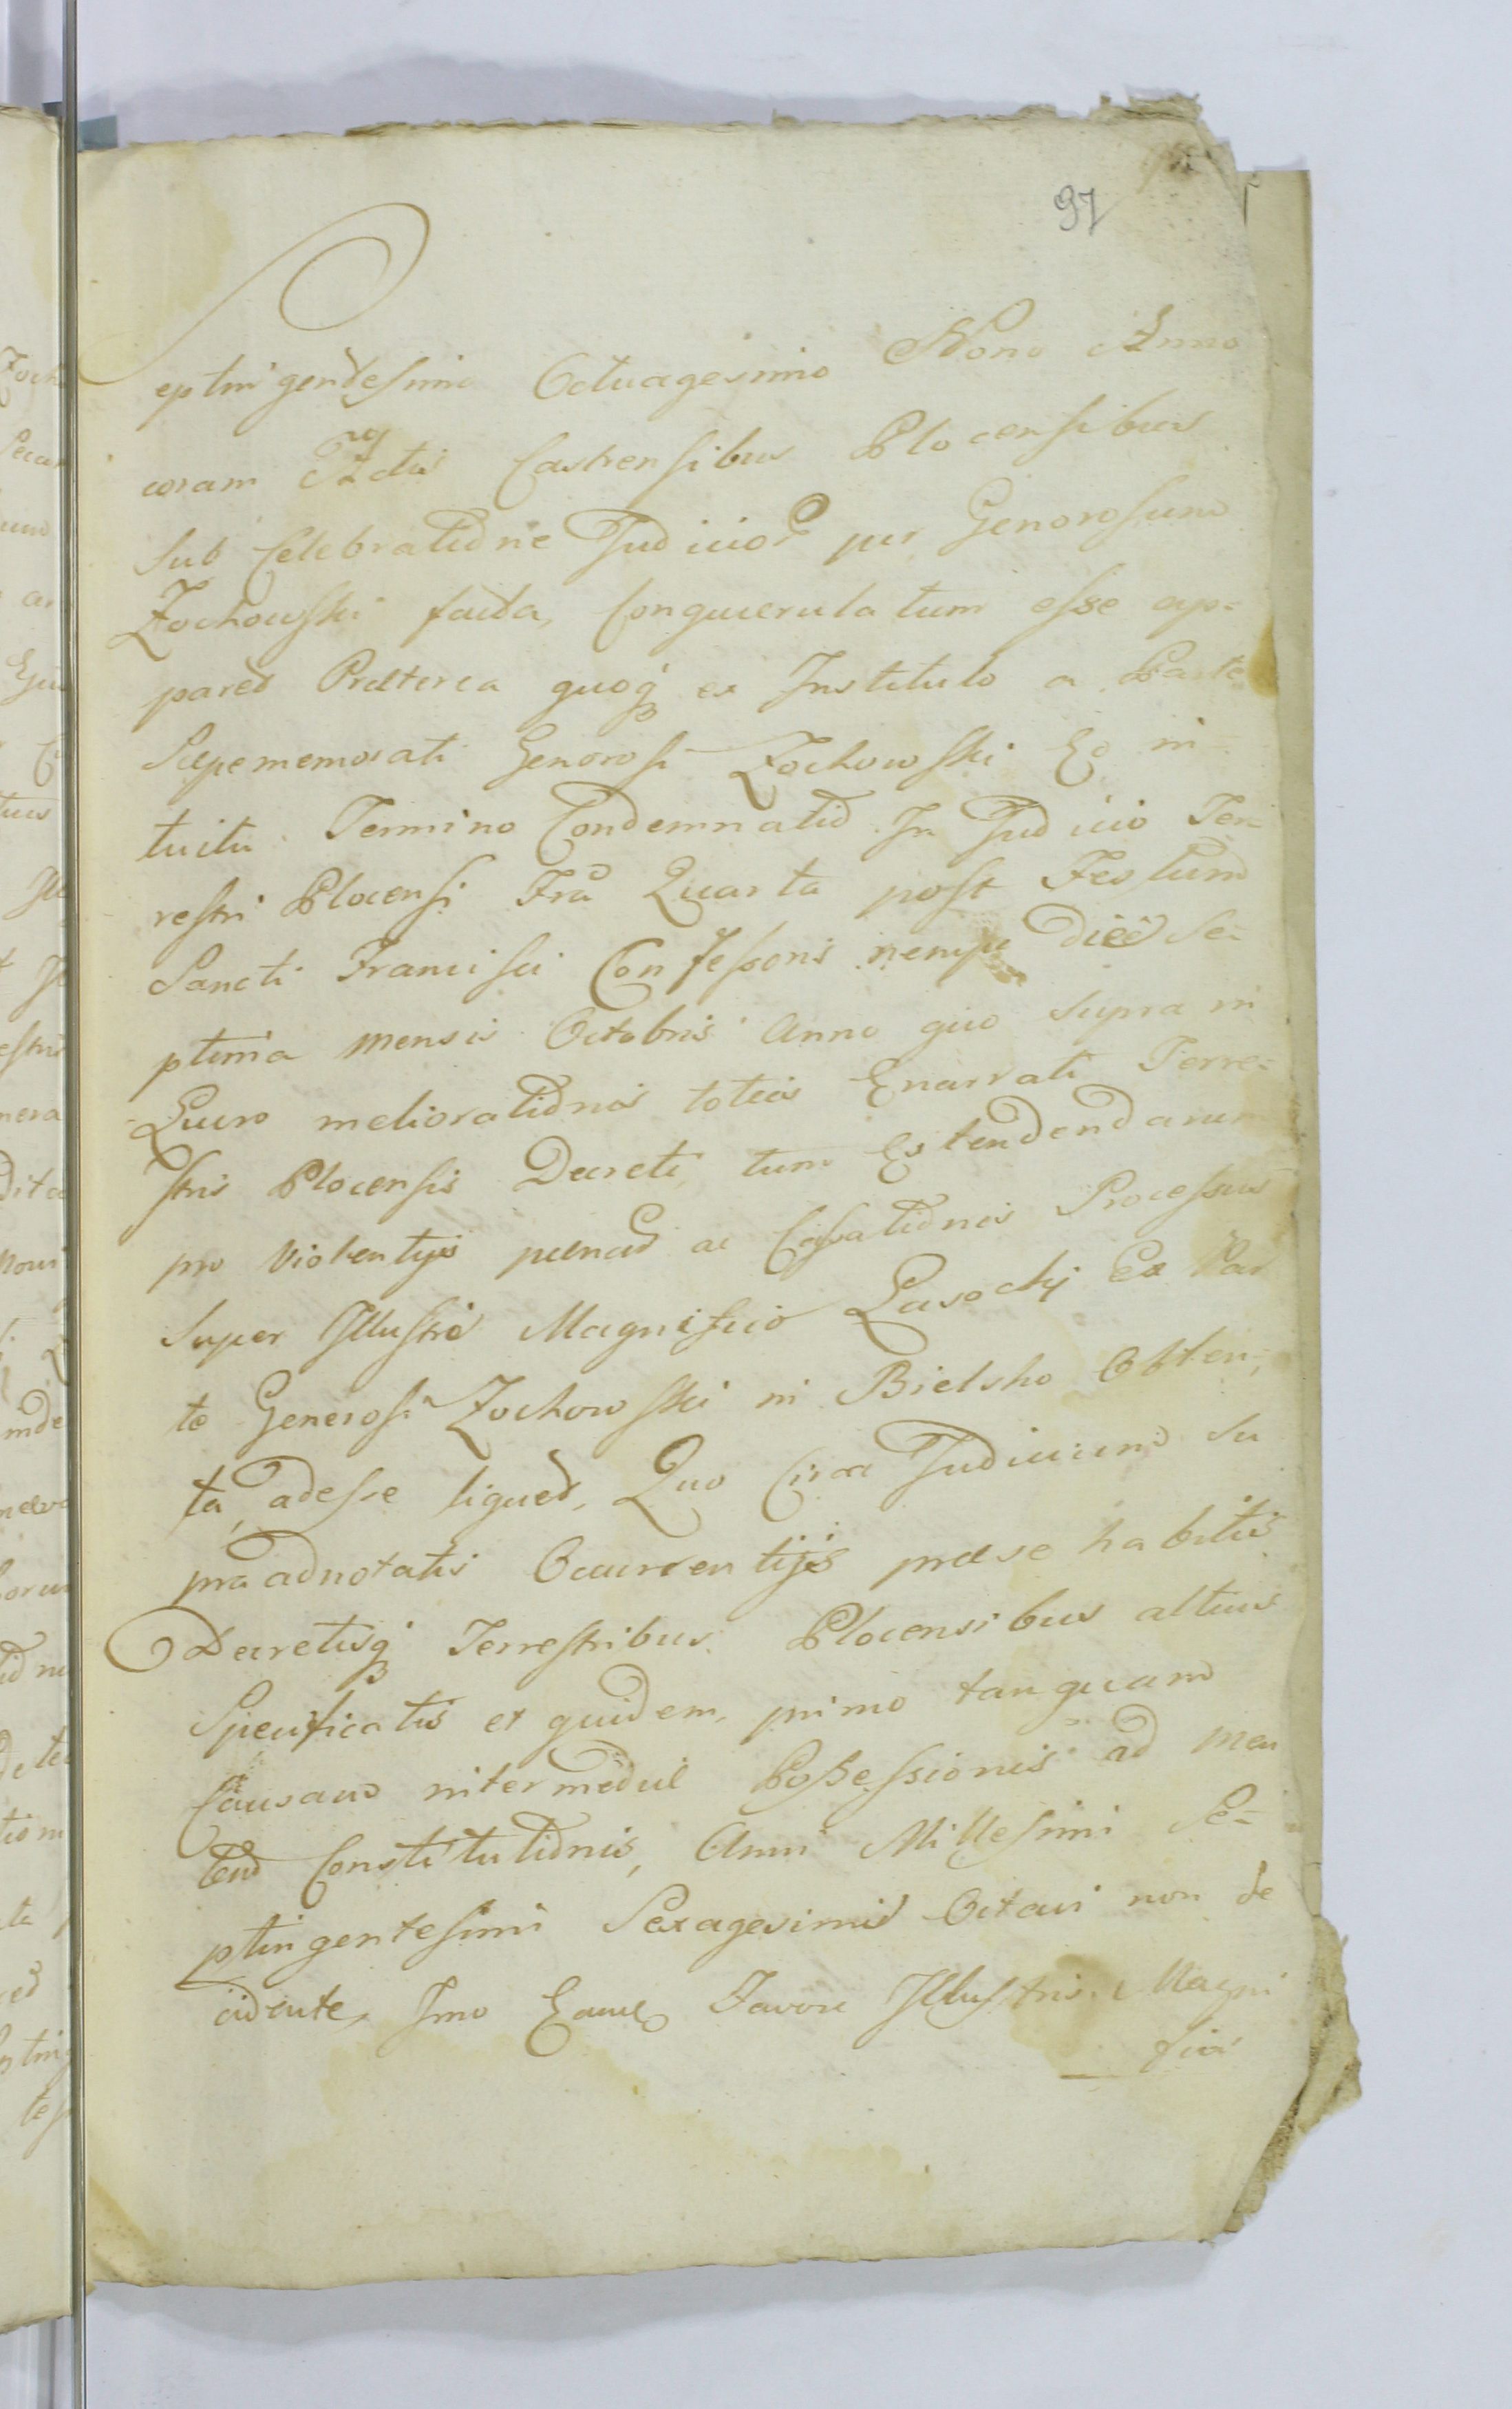 97
Septuigentesimo Octuagesimo Nono Anno
coram Actis Castrensibus Plocensibus
sub Celebratione Judicior per Generosum
Zochowski facta, Conquerulatum esse ap=
paret Præterea quoq ex Instituto a Parte
Sæpememorati Generosi Zochowski Eo in=
tuitu Termino Condemnatio In Judicio Ter=
restri Plocensi Fra Quarta post Festum
Sancti Francisci Confessoris nempe die Se=
ptima mensis Octobris Anno quo supra in
Puro meliorationis toties Enarrati Terre=
stris Plocensis Decreti, tum Extendendarum
pro Violentijs pænarum ac Cassationis Processus
super Illustri Magnifico Lasocki Ex Par
te Generosi Zochowski in Bielsko Obten=
ta, adesse liquet, Quo Circa Judicium Su
pra adnotatis Occurrentijs præse habitis
Decretisq Terrestribus Plocensibus altius
Specificatis et quidem, primo tanquam
Causam intermediæ Possessionis ad men
tem Constitutionis, Anni Millesimi Se=
ptingentesimi Sexagesimi Octavi non de
cidente, Imo Favore Illustris Magni
fici